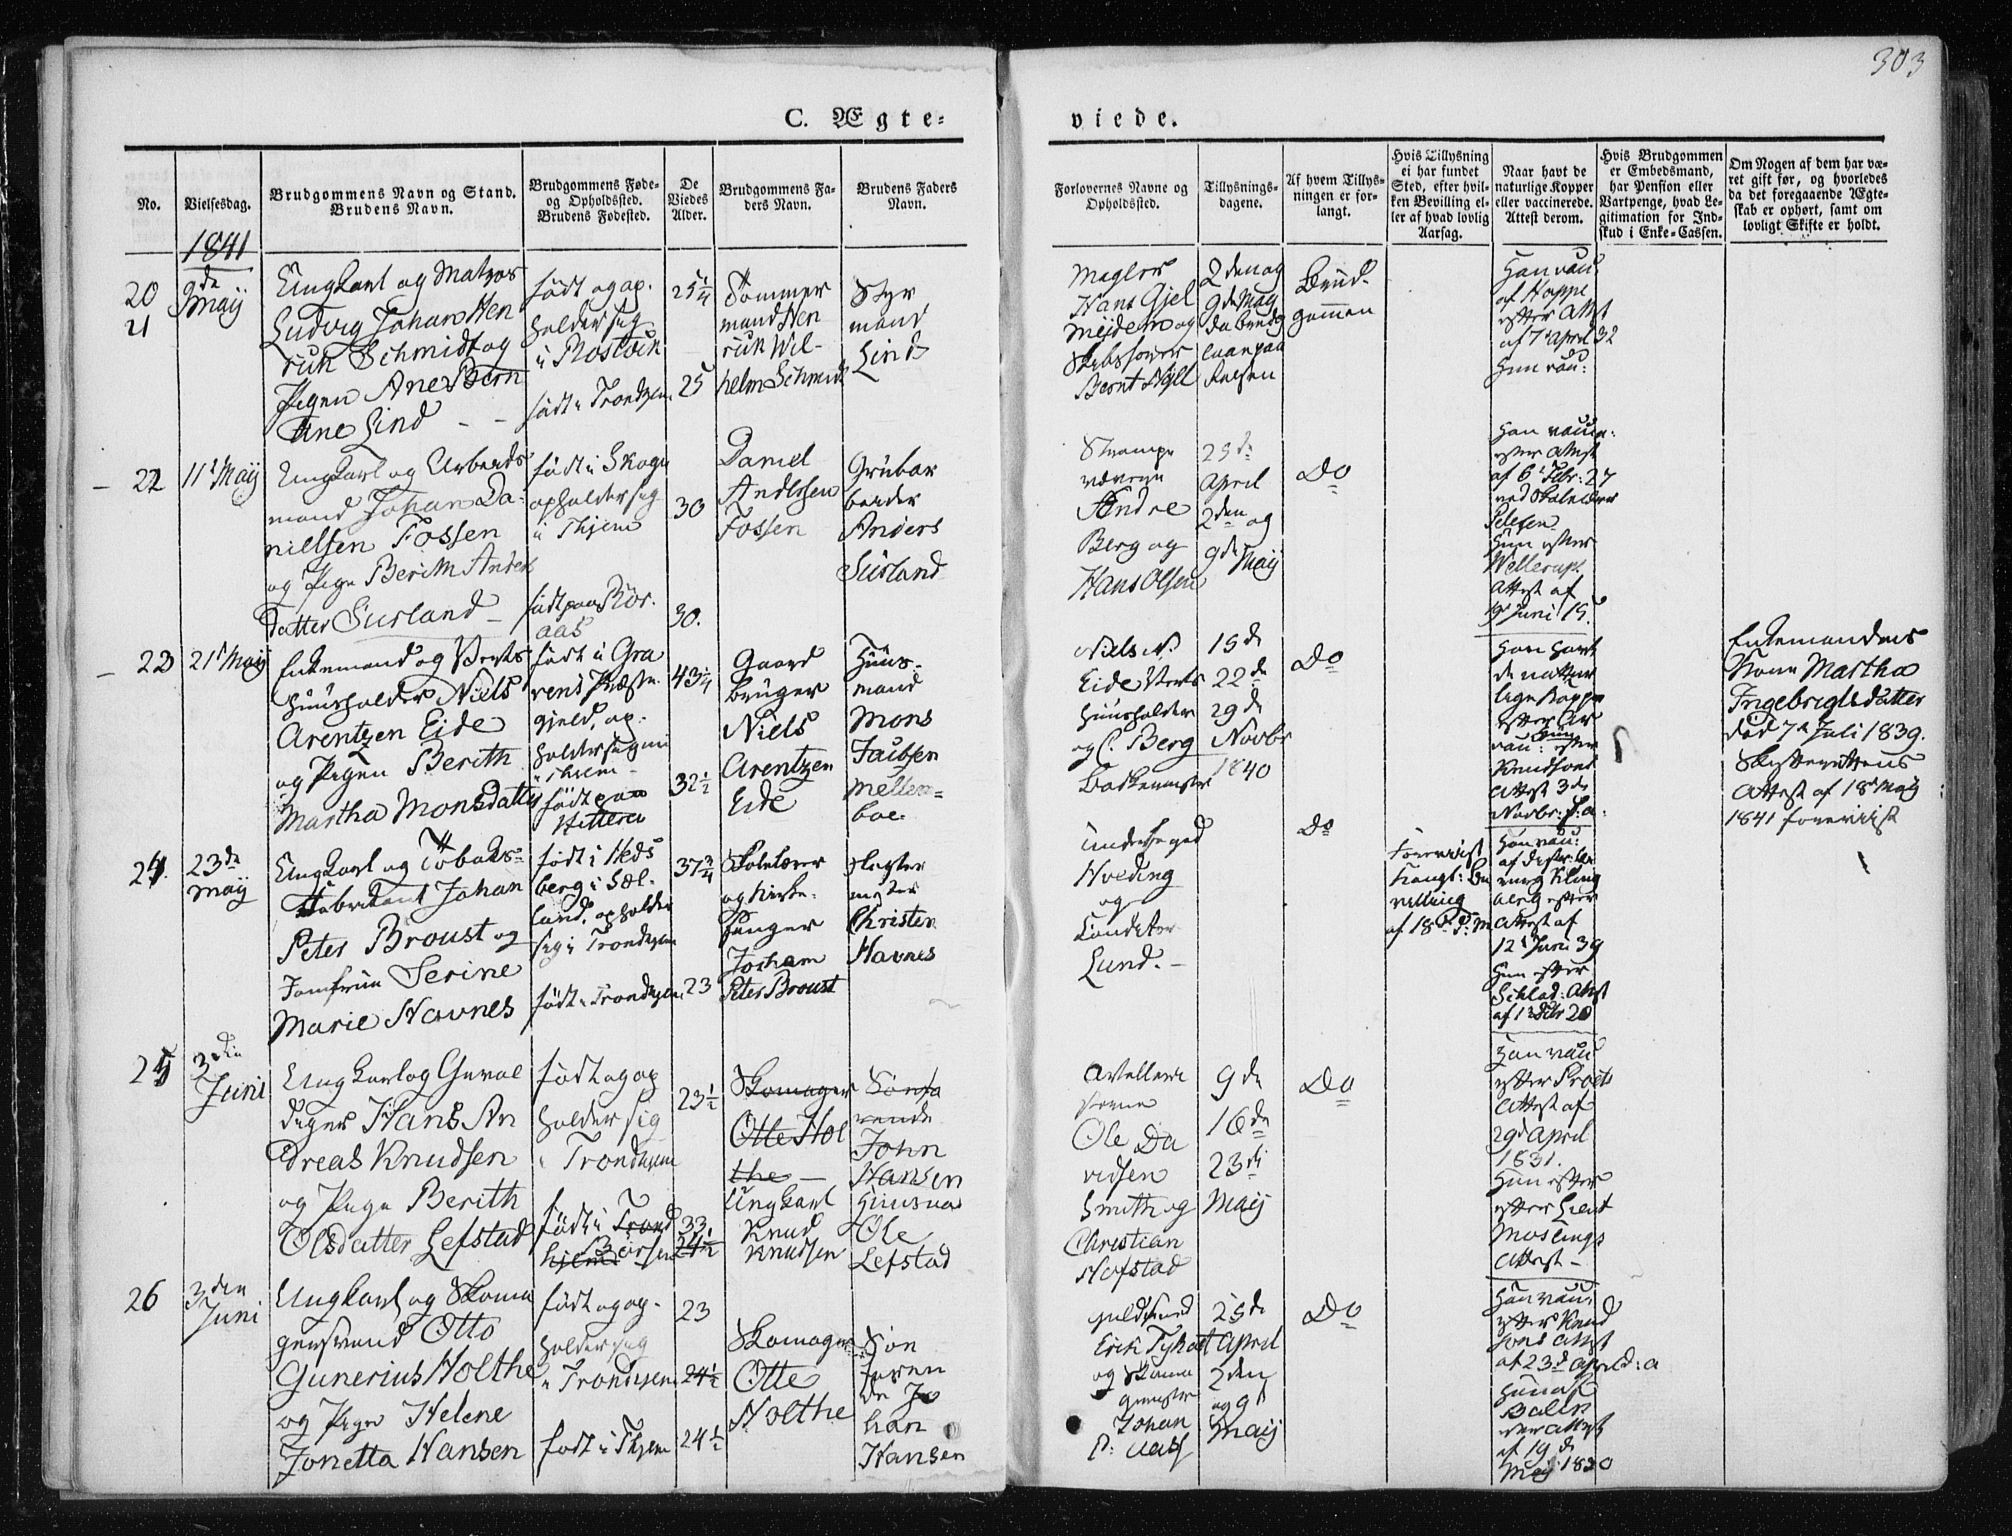 303
C. Ægte-
viede.
No.
Vielsesdag.
Brudgommens Navn og Stand.
Brudens Navn.
Brudgommens Føde-
og Opholdssted.
Brudens Fødested.
De
Viedes
Alder.
Brudgommens Fa-
ders Navn.
Brudens Faders
Navn.
Forlovernes Navne og
Opholdssted.
Tillysnings-
dagene.
Af hvem Tillys-
ningen er for-
langt.
Hvis Tillysning
ei har fundet
Sted, efter hvil-
ken Bevilling el-
ler af hvad lovlig
Aarsag.
Naar havt de
naturlige Kopper
eller vaccinerede.
Attest derom.
Hvis Brudgommen
er Embedsmand,
har Pension eller
Vartpenge, hvad Le-
gitimation for Ind-
skud i Enke-Cassen.
Om Nogen af dem har væ-
ret gift før, og hvorledes
da det foregaaende Ægte-
skab er ophørt, samt om
lovligt Skifte er holdt.
1841
20
21
9de
Maij
Ungkarl og Matros
Ludvig Johan Hen
rich Schmidt og
Pigen Ane Bern
tine Lind
født og op-
holder sig
i Rostock
født i Trondhjem
25 1/4
25
Tømmer
mand Hen
rich Wil-
helm Schmidt
Styr
mand
Lind
Mægler
Hans Gjel
Mejdem og
Berent
2den og
9de Maij
Brud-
gommen
Han vac:
af Hoppe
efter Attest
af 7 April 32
Hun vac:
22
11te Maij
Ungkarl og Arbeids
mand Johan Da-
nielsen Fossen
og Pige Berith Anders
datter Surland
født i Skogn
opholder sig
i Thjem
født paa Rør-
aas
30
30.
Daniel
Andersen
Fossen
Grubar
beider
Anders
Surland
Strømpe
væver
Andre
Berg og
Hans Olsen
25de
April
2den og
9de Maij
Do
Han vaccin:
efter Attest
af 6 Febr: 27
ved Skolelærer
Petersen
Hun efter
Wellerup
Attest af
19 Juni 15.
23
21de Maij
Enkemand og Verts
huusholder Niels
Arentzen Eide
og Pigen Berith
Martha Monsdatter
født i Gra
vens Præste-
gjeld, op-
holder sig
i Thjem
født paa
Hitteren
43 1/4
32 1/2
Gaard
bruger
Niels
Arentzen
Eide
Huus-
mand
Mons
Jacobsen
Mellem-
boe
Niels N.
Eide Verts
huusholder
og C. Berg
15de
22de
29de
Novbr
1840
Do
Han havt
de natur
lige Kopper
efter Ar
vac: efter
Knudsons
Attest 3de
Novbr: f: a:
Enkemandens
Kone Martha
Ingebrigtsdatter
død 7de Juli 1839.
Skifterettens
Attest af 18de Maij
1841 foreviist
24.
23de
Maij
Ungkarl og Tobaks-
fabrikant Johan
Peter Broust og
Jomfrue Serine
Marie Havnes
født i Heds
berg i Sæl-
land, opholder
sig i Trondhjem
født i Trondhjem
37 3/4
23
Skolelærer
og Kirke-
sanger
Jochum
Peter Broust
Slagter
mester
Christen
Havnes
Underfoged
Hveding
og
Conditor
Lund.
Do
Foreviist
Kongl: Be
villing
af 18 d: M:
Han vac:
af
berg efter
Attest af
12te Juni 39
Hun efter
Attest
25
3die
Juni
Ungkarl og Garve
Hans An
dreas Knudsen
og Pige Berith
Olsdatter Lefstad
født og op
holder sig
i Trondhjem
født i Trond
hjem Børsen
23 1/2
33
24 1/2
Skomager
Otte Hol
the
Ungkarl
Knud
Knudsen
Sønfa
rende
John
Hansen
Huusma
Ole
Lefstad
Ole Da
vidsen
Smith og
Christian
Hofstad
9de
16de
23de
Maij
Do
Han vac:
efter
Attest af
29de April
1831.
Hun efter
Lieut
Moslings
Attest
26
3den
Juni
Ungkarl og Skoma
gersvend Otto
Gunerius Holthe
og Pige Helene
Jonetta Hansen
født og op-
holder sig
i Trondhjem
født i Thjem
23
24 1/2
24 1/2
Skomager
Otte
Holthe
Søe
faren
de Jo
han
Hansen
Guldsmed
Erik Tyholt
og Skoma
germester
Johan
P: Aas
25de
April
2den
og 9de
Maij
Do
Han vac:
efter Knud
sons Attest
af 23de April d: a
Hun af
efter Attest
af 19de
Maij 1820